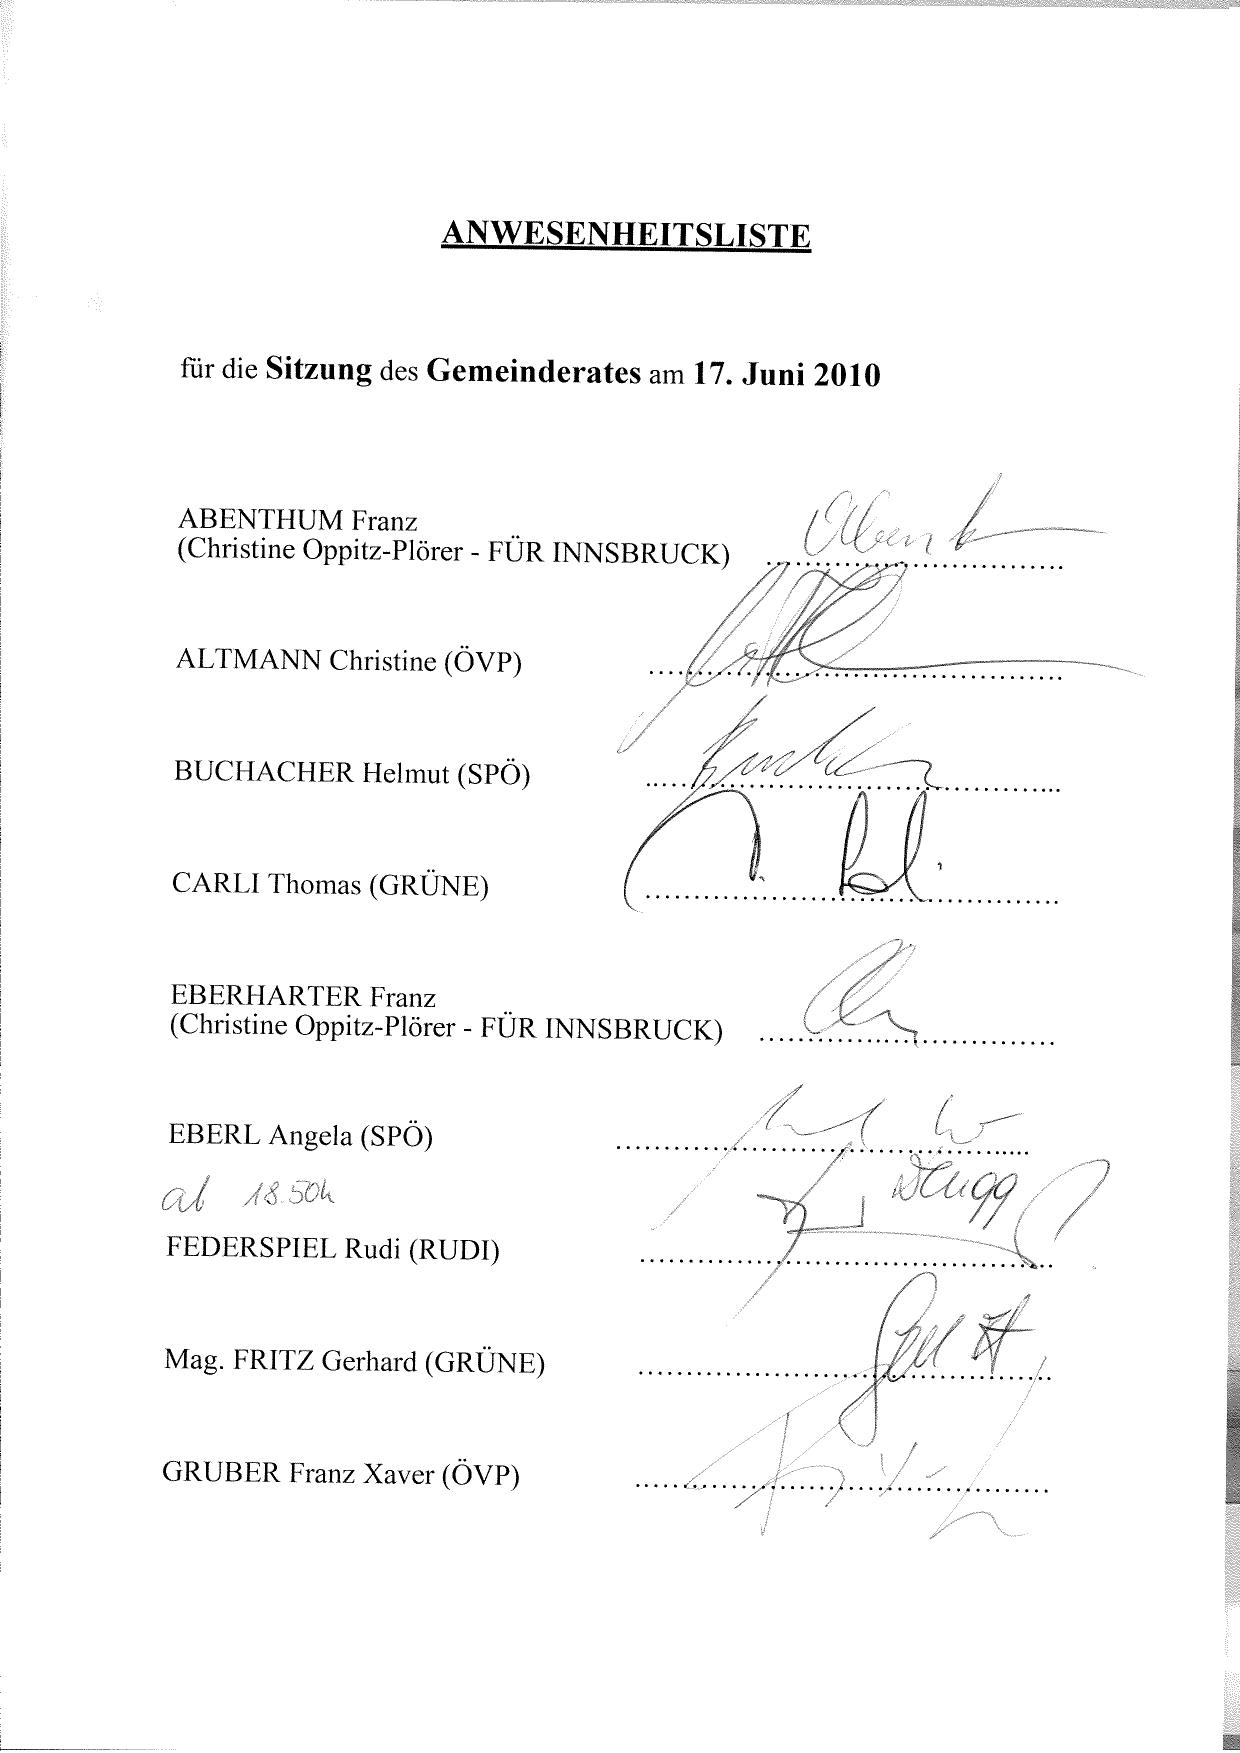 ANWESENHEITSLISTE
für die Sitzung des Gemeinderates am 17. Juni 2010
ABENTHUM Franz
(Christine Oppitz-Plörer - FÜR INNSBRUCK) ..............................
ALTMANN Christine (ÖVP) ..............................
BUCHACHER Helmut (SPÖ) ..............................
CARLI Thomas (GRÜNE) ..............................
EBERHARTER Franz
(Christine Oppitz-Plörer - FÜR INNSBRUCK) ..............................
EBERL Angela (SPÖ) ..............................
ab 18.50h
FEDERSPIEL Rudi (RUDI) ..............................
Mag. FRITZ Gerhard (GRÜNE) ..............................
GRUBER Franz Xaver (ÖVP) ..............................